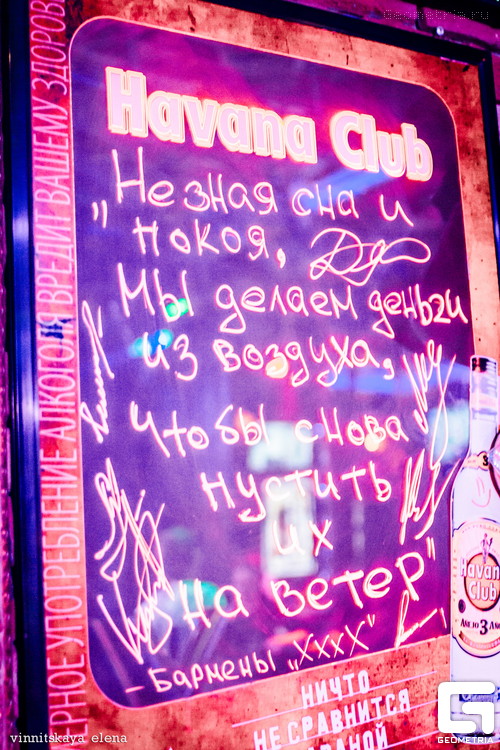 Geometria.ru
Havana Club
„Не зная сна и
покоя,
Мы делаем деньги
из воздуха,
чтобы снова
пустить
их
на ветер"
- Бармены „XxxX"
РНОЕ УПОТРЕБЛЕНИЕ АЛКОГОЛЯ ВРЕДИТ ВАШЕМУ ЗДОРОВ
НИЧТО
НЕ СРАВНИТСЯ
Havana
Club
AÑEJO 3 AÑOS
GEOMETRIA
vinnitskaya elena